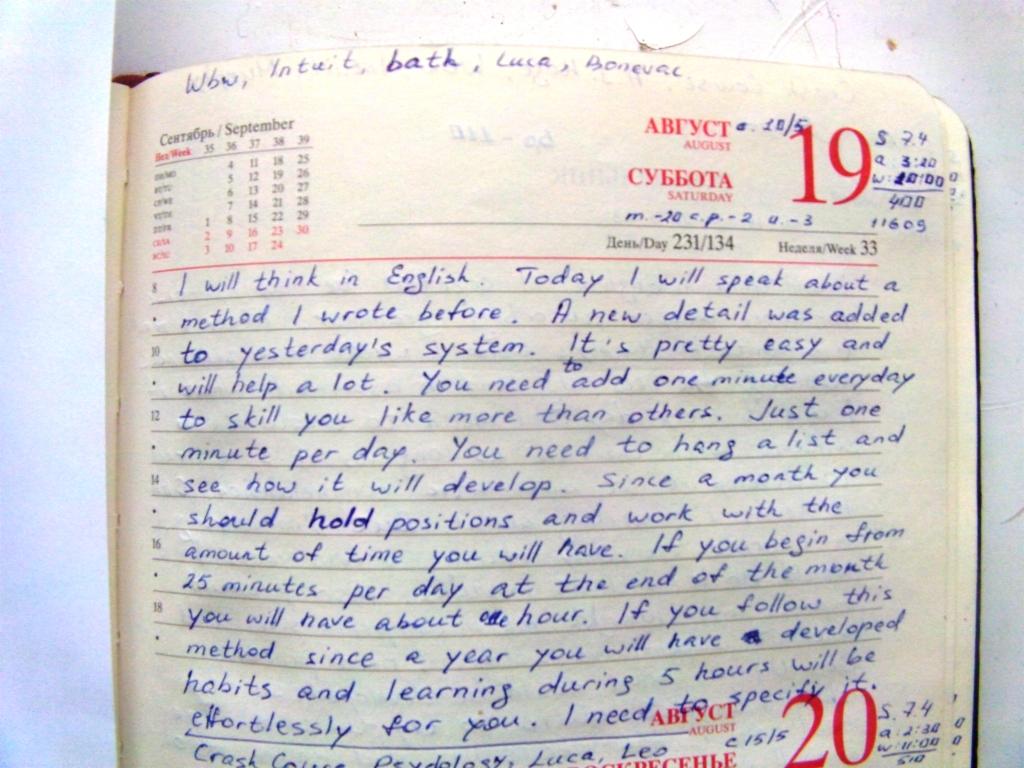 Wbw, Intuit, bath, Luca, Bonevac
Сентябрь / September
Нед/Week 35 36 37 38 39
ПН/MO 4 11 18 25
ВТ/TU 5 12 19 26
СР/WE 6 13 20 27
7 14 21 28
1 8 15 22 29
СБ/SA 2 9 16 23 30
3 10 17 24
АВГУСТ
AUGUST
СУББОТА
SATURDAY
19
a. 10/5
S. 7.4
a 3:20
400
11609
m.-20 c.p.-2 u.-3
День/Day 231/134 Неделя/Week 33
8 I will think in English. Today I will speak about a
method I wrote before. A new detail was added
10 to yesterday's system. It's pretty easy and
will help a lot. You need to add one minute everyday
12 to skill you like more than others. Just one
minute per day. You need to hang a list and
14 see how it will develop. Since a month you
should hold positions and work with the
16 amount of time you will have. If you begin from
25 minutes per day at the end of the month
18 you will have about one hour. If you follow this
method since a year you will have developed
habits and learning during 5 hours will be
effortlessly for you. I need to specify it.
АВГУСТ
AUGUST
ВОСКРЕСЕНЬЕ
20
c 15/5
S. 7.4
a: 2:30
w: 11:00
510
Crash Course Psydology, Luca, Leo